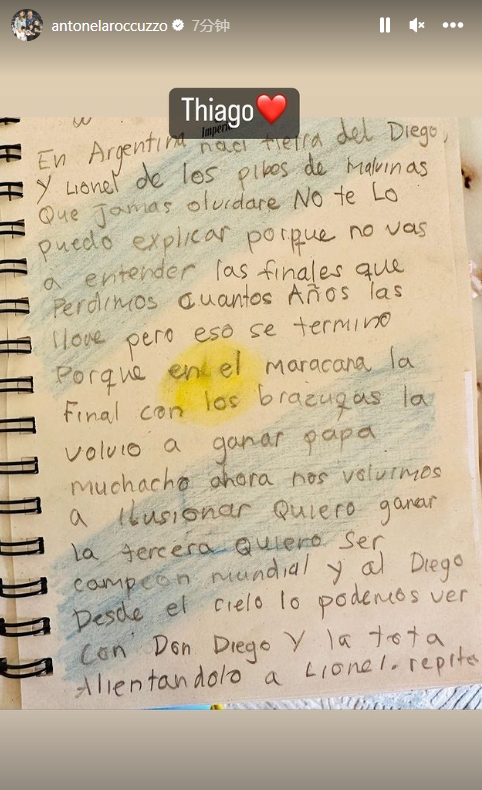 antonelaroccuzzo 7分钟
Thiago❤️
En Argentina naci tierra del Diego,
Y Lionel de los pibes de Malvinas
Que jamas olvidare No te Lo
puedo explicar porque no vas
a entender las finales que
Perdimos cuantos Años las
llore pero eso se termino
Porque en el maracana la
Final con los brazucas la
volvio a ganar papa
muchacho ahora nos volvimos
a ilusionar Quiero ganar
la tercera Quiero ser
campeon mundial y al Diego
Desde el cielo lo podemos ver
con Don Diego Y la tota
Alientandolo a Lionel. repite